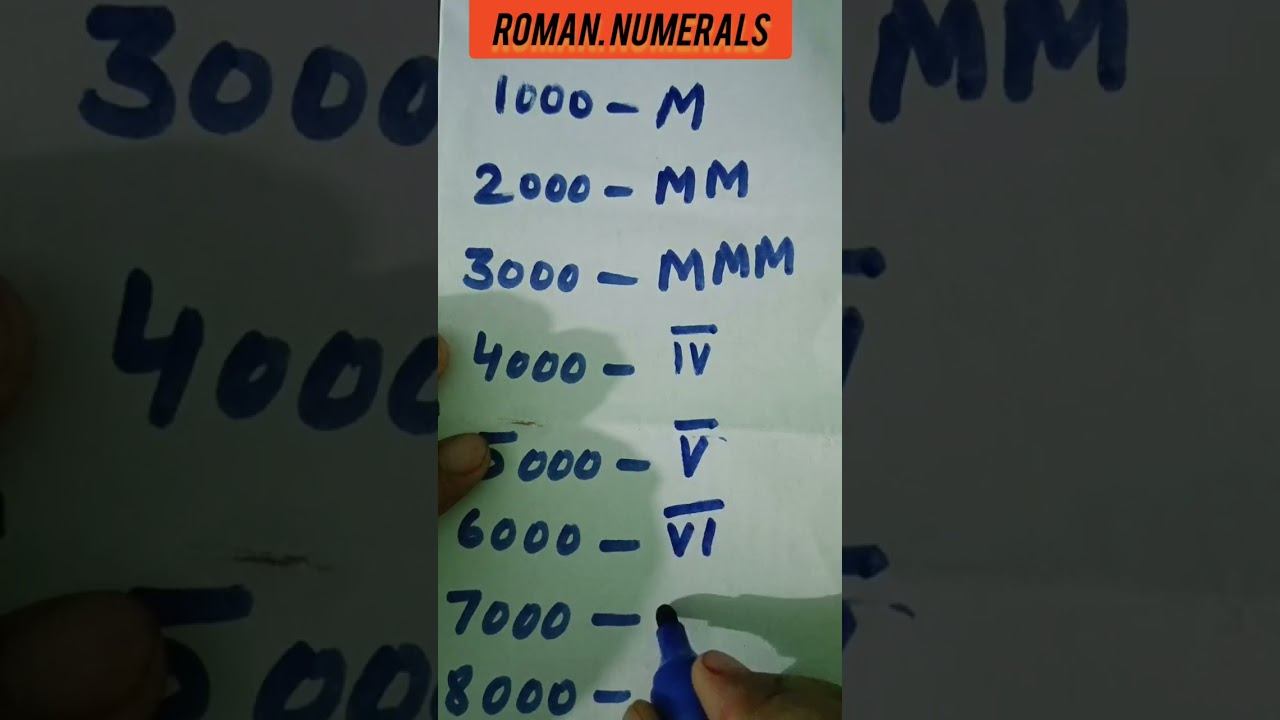 ROMAN.NUMERALS
1000 – M
2000 – MM
3000 – MMM
4000 – I̅V̅
5000 – V̅
6000 – V̅I̅
7000 –
8000 –